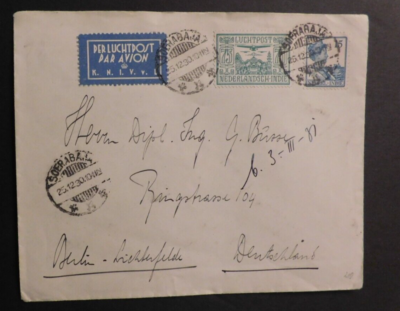 PER LUCHTPOST
PAR AVION
K.N.I.L.M.
SOERABAJA
25.12.30
LUCHTPOST
75
NEDERLANDSCH INDIË
SOERABAJA
25.12.30
Herrn Dipl. Ing. G. Büsse
6.3-III-31
SOERABAJA
25.12.30
Ringstrasse 109
Berlin-Lichterfelde Deutschland